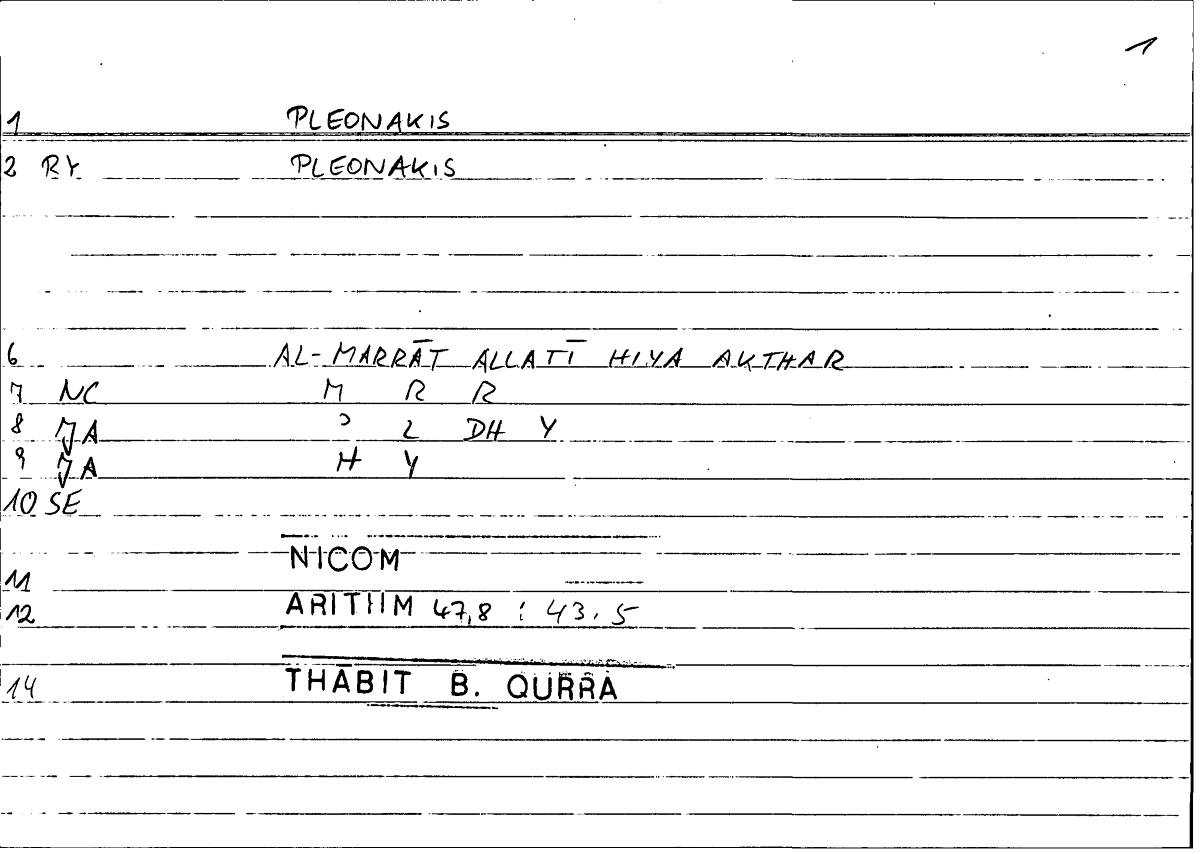 1
1 PLEONAKIS
2 RY PLEONAKIS
6 AL-MARRĀT ALLATĪ HIYA AKTHAR
7 NC M R R
8 JA ʾ L DH Y
9 JA H Y
10 SE
NICOM
11
12 ARITHM 47,8 : 43.5
14 THĀBIT B. QURRA